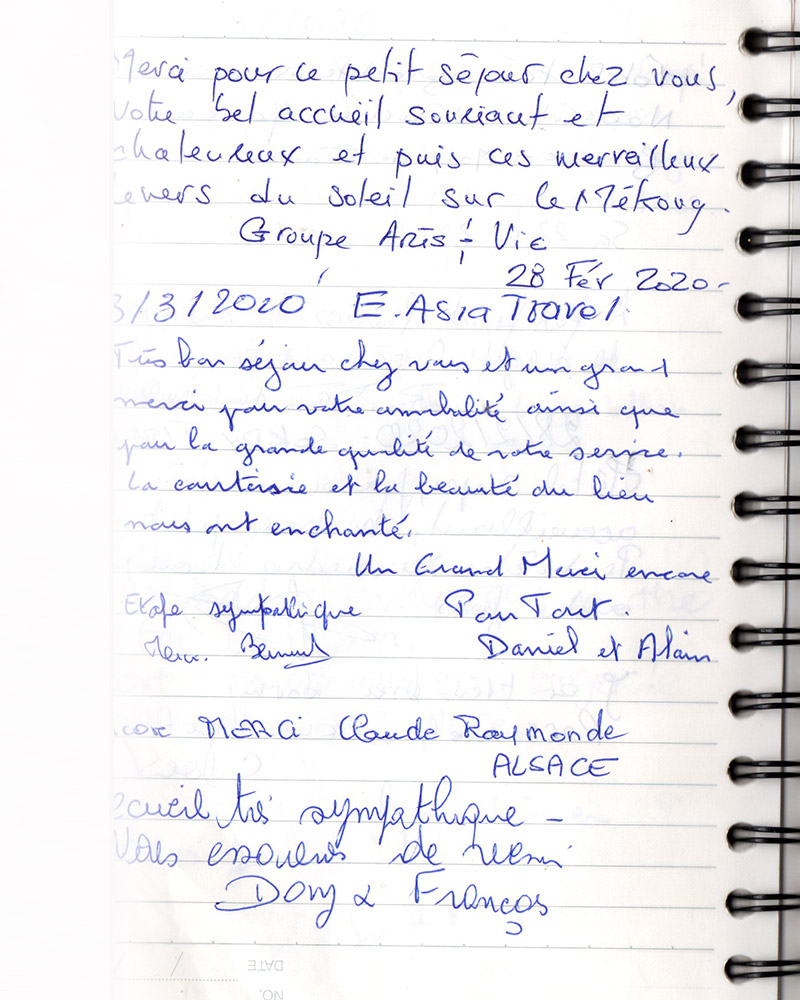 Merci pour ce petit séjour chez vous,
votre bel accueil souriant et
chaleureux et puis ces merveilleux
levers du soleil sur le Mékong.
Groupe Arts & Vie
28 Fév 2020-
3/3/2020 E. Asia Travel.
Très bon séjour chez vous et un grand
merci pour votre amabilité ainsi que
pour la grande qualité de votre service.
La courtoisie et la beauté du lieu
nous ont enchanté.
Un Grand Merci encore
Etape sympathique Pour Tout.
Merci. Daniel et Alain
core MERCi Claude Raymonde
ALSACE
ccueil très sympathique -
Nous essaierons de revenir
Dory & François
DATE
NO.